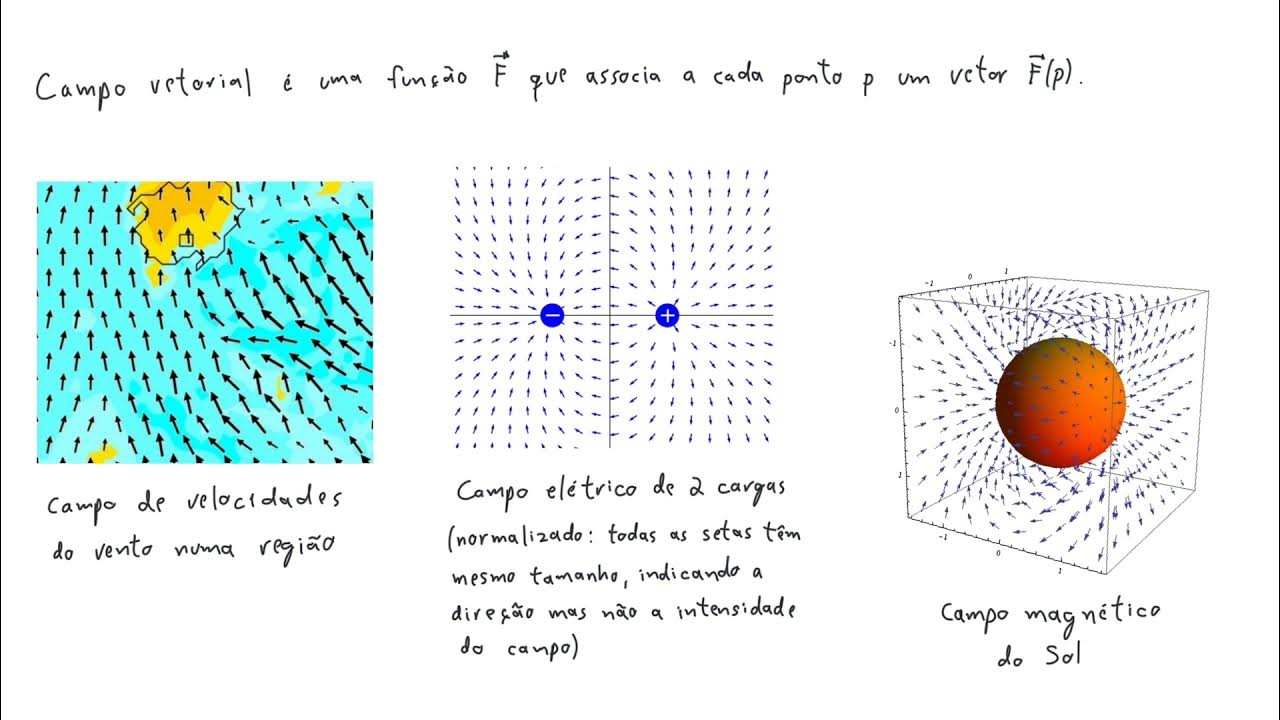 Campo vetorial é uma função F⃗ que associa a cada ponto p um vetor F⃗(p).
Campo de velocidades
do vento numa região
−
+
Campo elétrico de 2 cargas
(normalizado: todas as setas têm
mesmo tamanho, indicando a
direção mas não a intensidade
do campo)
-1 0 1
-1
0
1
-1 0 1
Campo magnético
do Sol